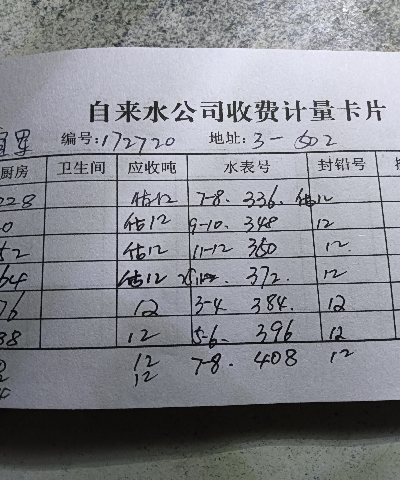 自来水公司收费计量卡片
编号:172720 地址:3-602
厨房 卫生间 应收吨 水表号 封铅号
228 估12 7-8. 336. 估12
0 估12 9-10. 348 12
52 估12 11-12 360 12.
64 估12 372. 12
76 12 3-4 384. 12
88 12 5-6. 396 12
12 7-8. 408 12
12